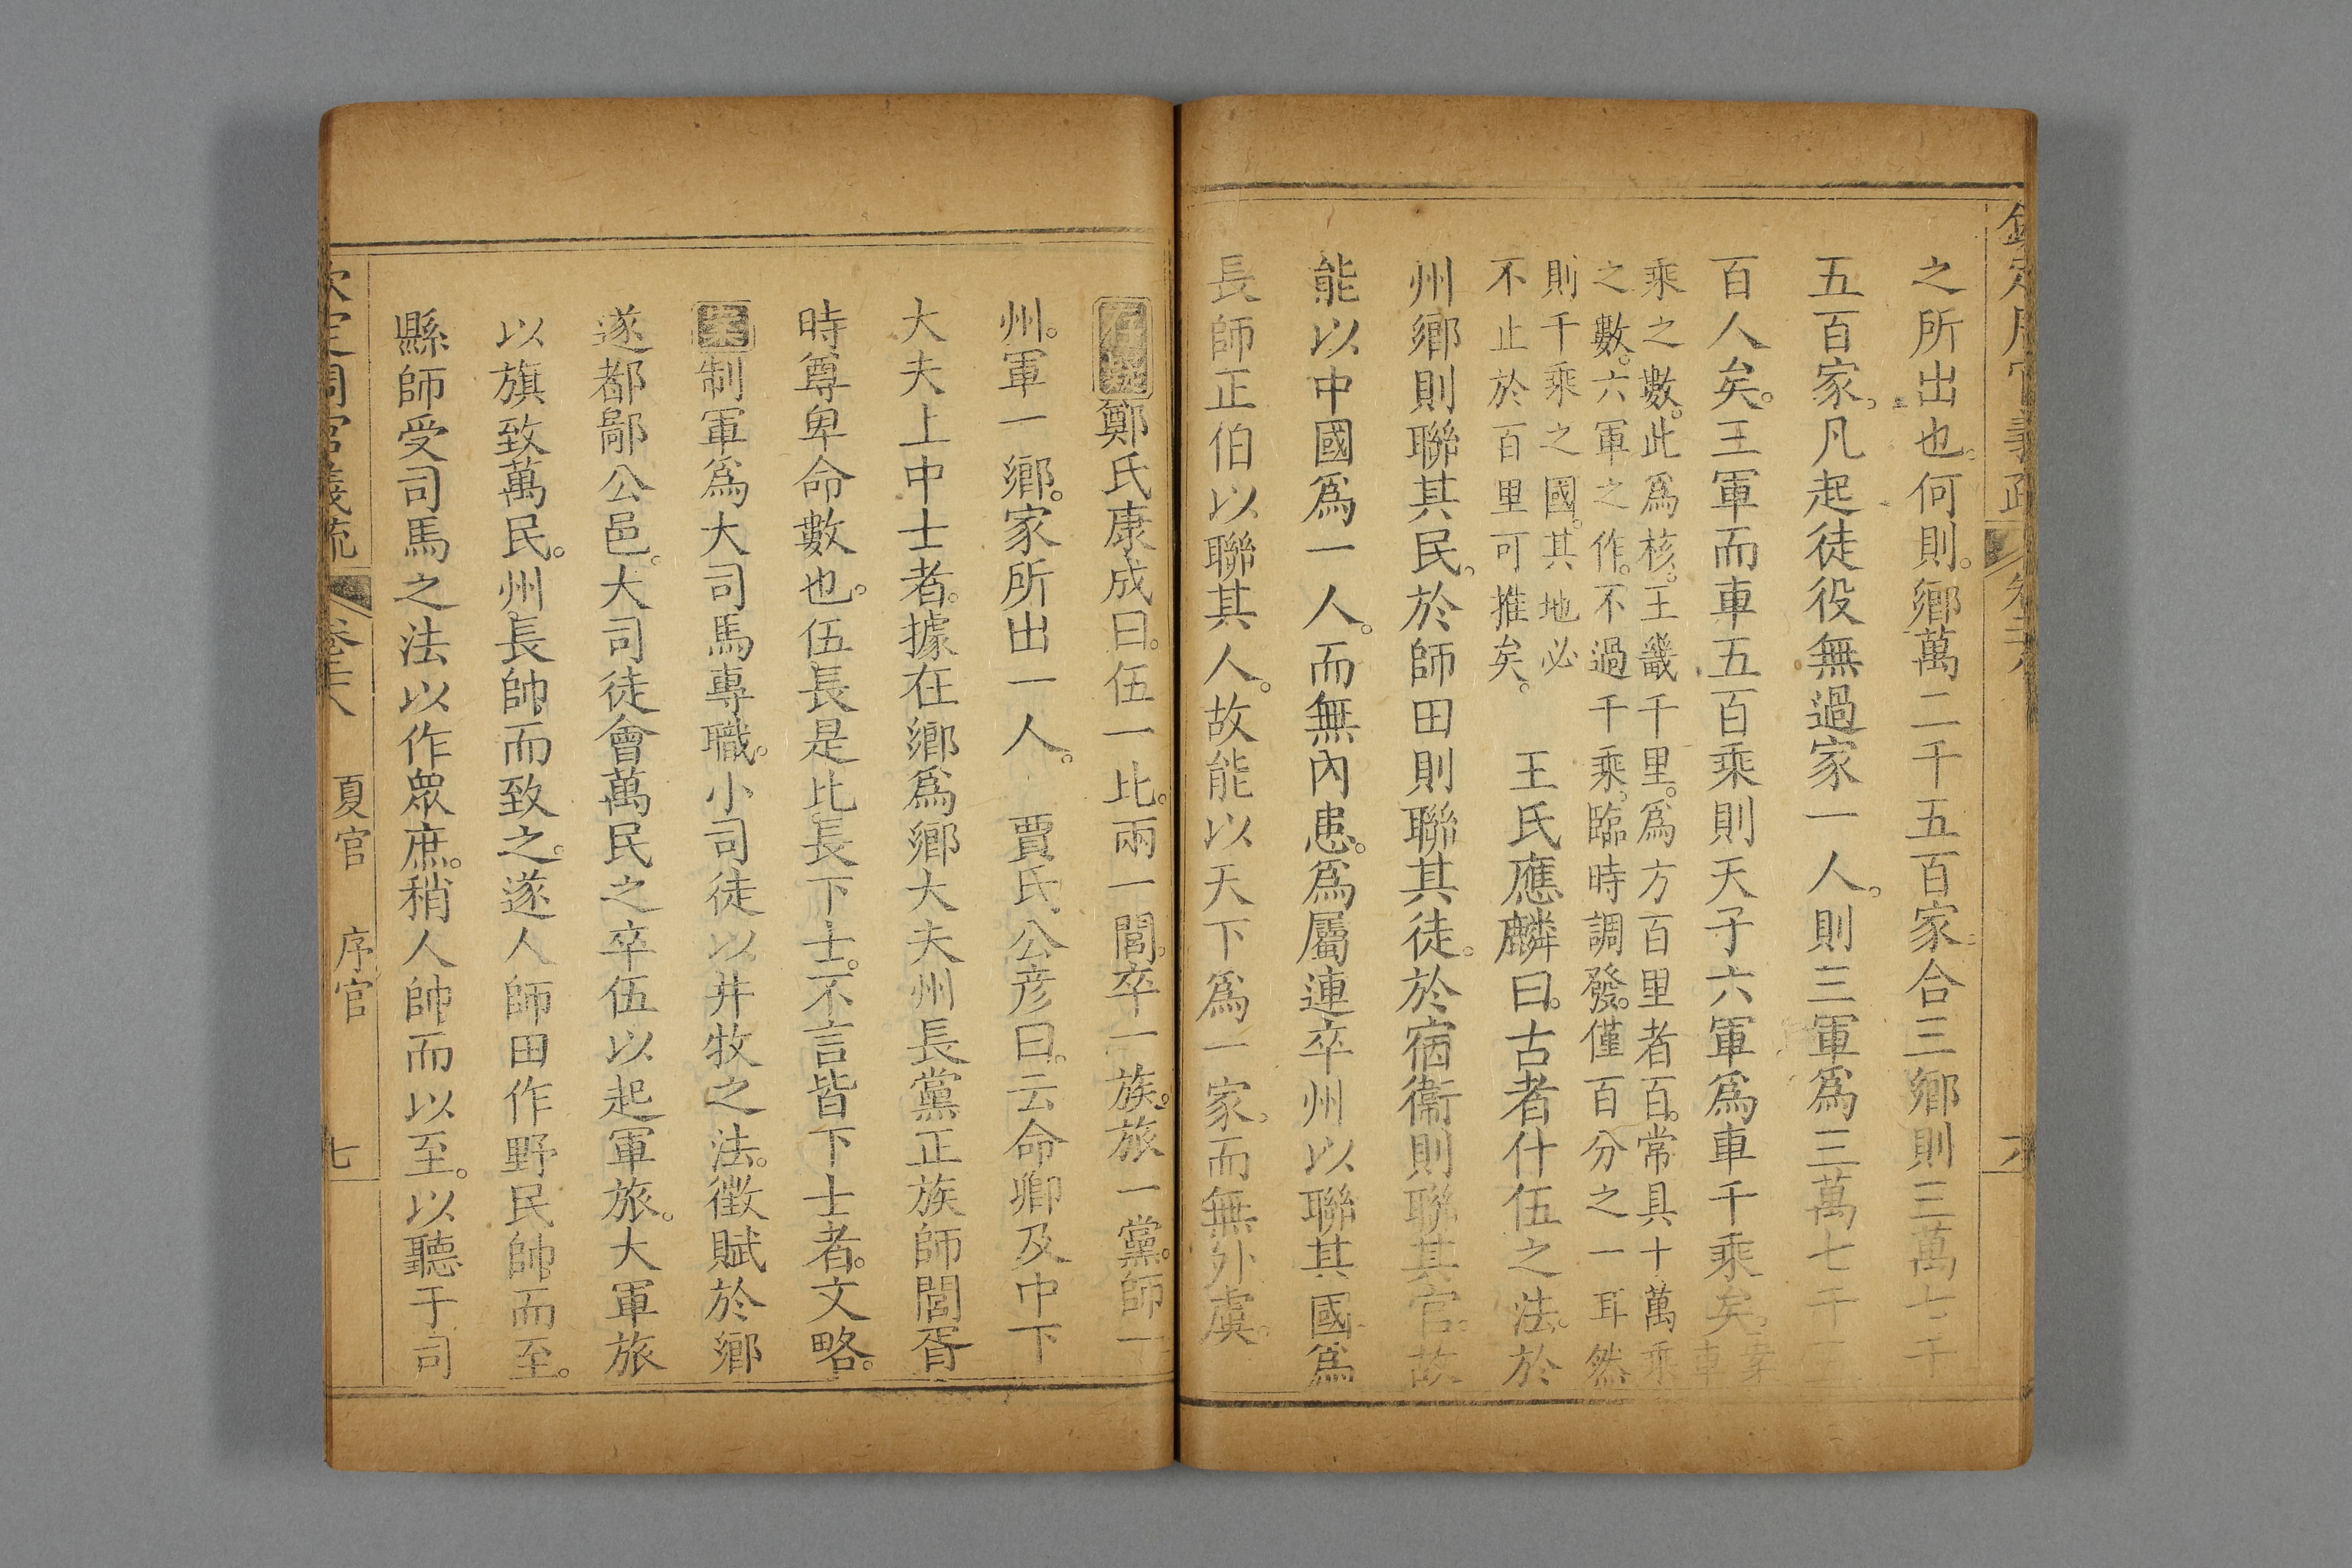 之所出也。何則。鄉萬二千五百家。合三鄉則三萬七千
五百家。凡起徒役無過家一人。則三軍爲三萬七千五
百人矣。王軍而車五百乘則天子六軍爲車千乘矣。案車
乘之數。此爲核。王畿千里。爲方百里者百。常具十萬乘
之數。六軍之作。不過千乘。臨時調發。僅百分之一耳然
則千乘之國。其地必
不止於百里可推矣。 王氏應麟曰。古者什伍之法。於
州鄉則聯其民。於師田則聯其徒。於宿衞則聯其官。故
能以中國爲一人。而無內患。爲屬連卒州以聯其國爲
長師正伯以聯其人。故能以天下爲一家。而無外虞。
欽定周官義疏 卷二十八 夏官 序官 七
鄭氏康成曰。伍一比。兩一閭。卒一族。旅一黨。師一
州。軍一鄉。家所出一人。 賈氏公彥曰。云命卿及中下
大夫上中士者。據在鄉爲鄉大夫州長黨正族師閭胥
時尊卑命數也。伍長是比長下士。不言皆下士者。文略。
案制軍爲大司馬專職。小司徒以井牧之法。徵賦於鄉
遂都鄙公邑。大司徒會萬民之卒伍以起軍旅。大軍旅
以旗致萬民。州長帥而致之。遂人師田作野民帥而至。
縣師受司馬之法以作眾庶。稍人帥而以至。以聽于司